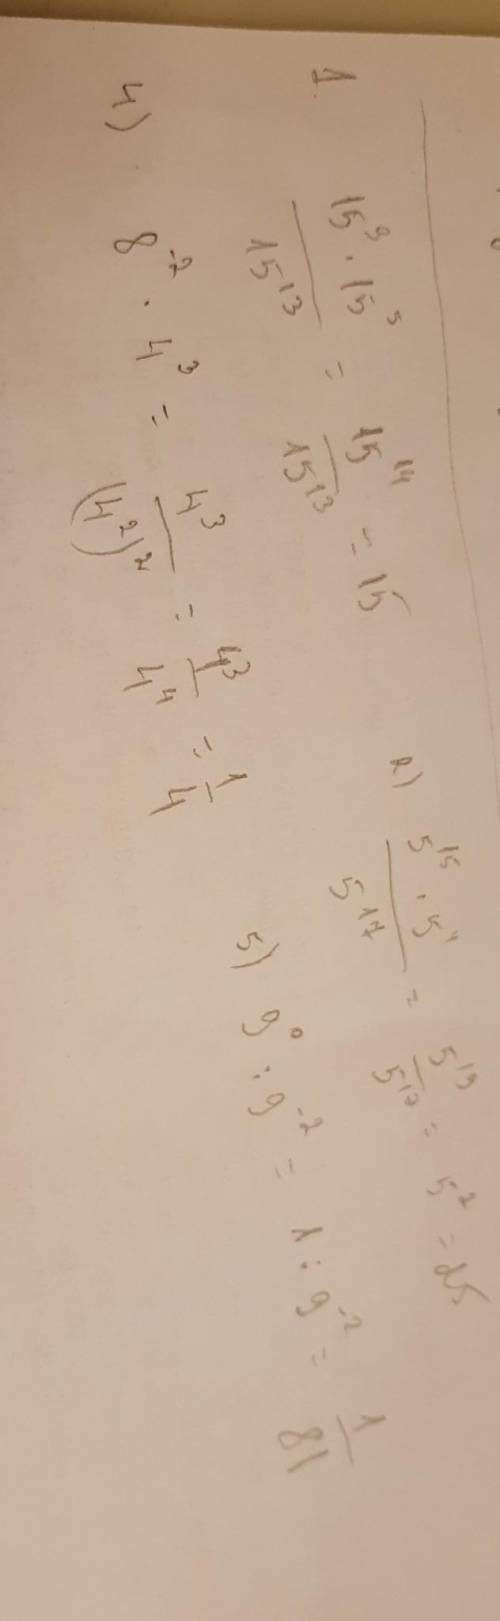 1. 15⁹ · 15⁵ / 15¹³ = 15¹⁴ / 15¹³ = 15
2) 5¹⁵ · 5⁴ / 5¹⁷ = 5¹⁹ / 5¹⁷ = 5² = 25
4) 8⁻² · 4³ = 4³ / (4²)² = 4³ / 4⁴ = 1 / 4
5) 9⁰ : 9⁻² = 1 : 9⁻² = 1 / 81